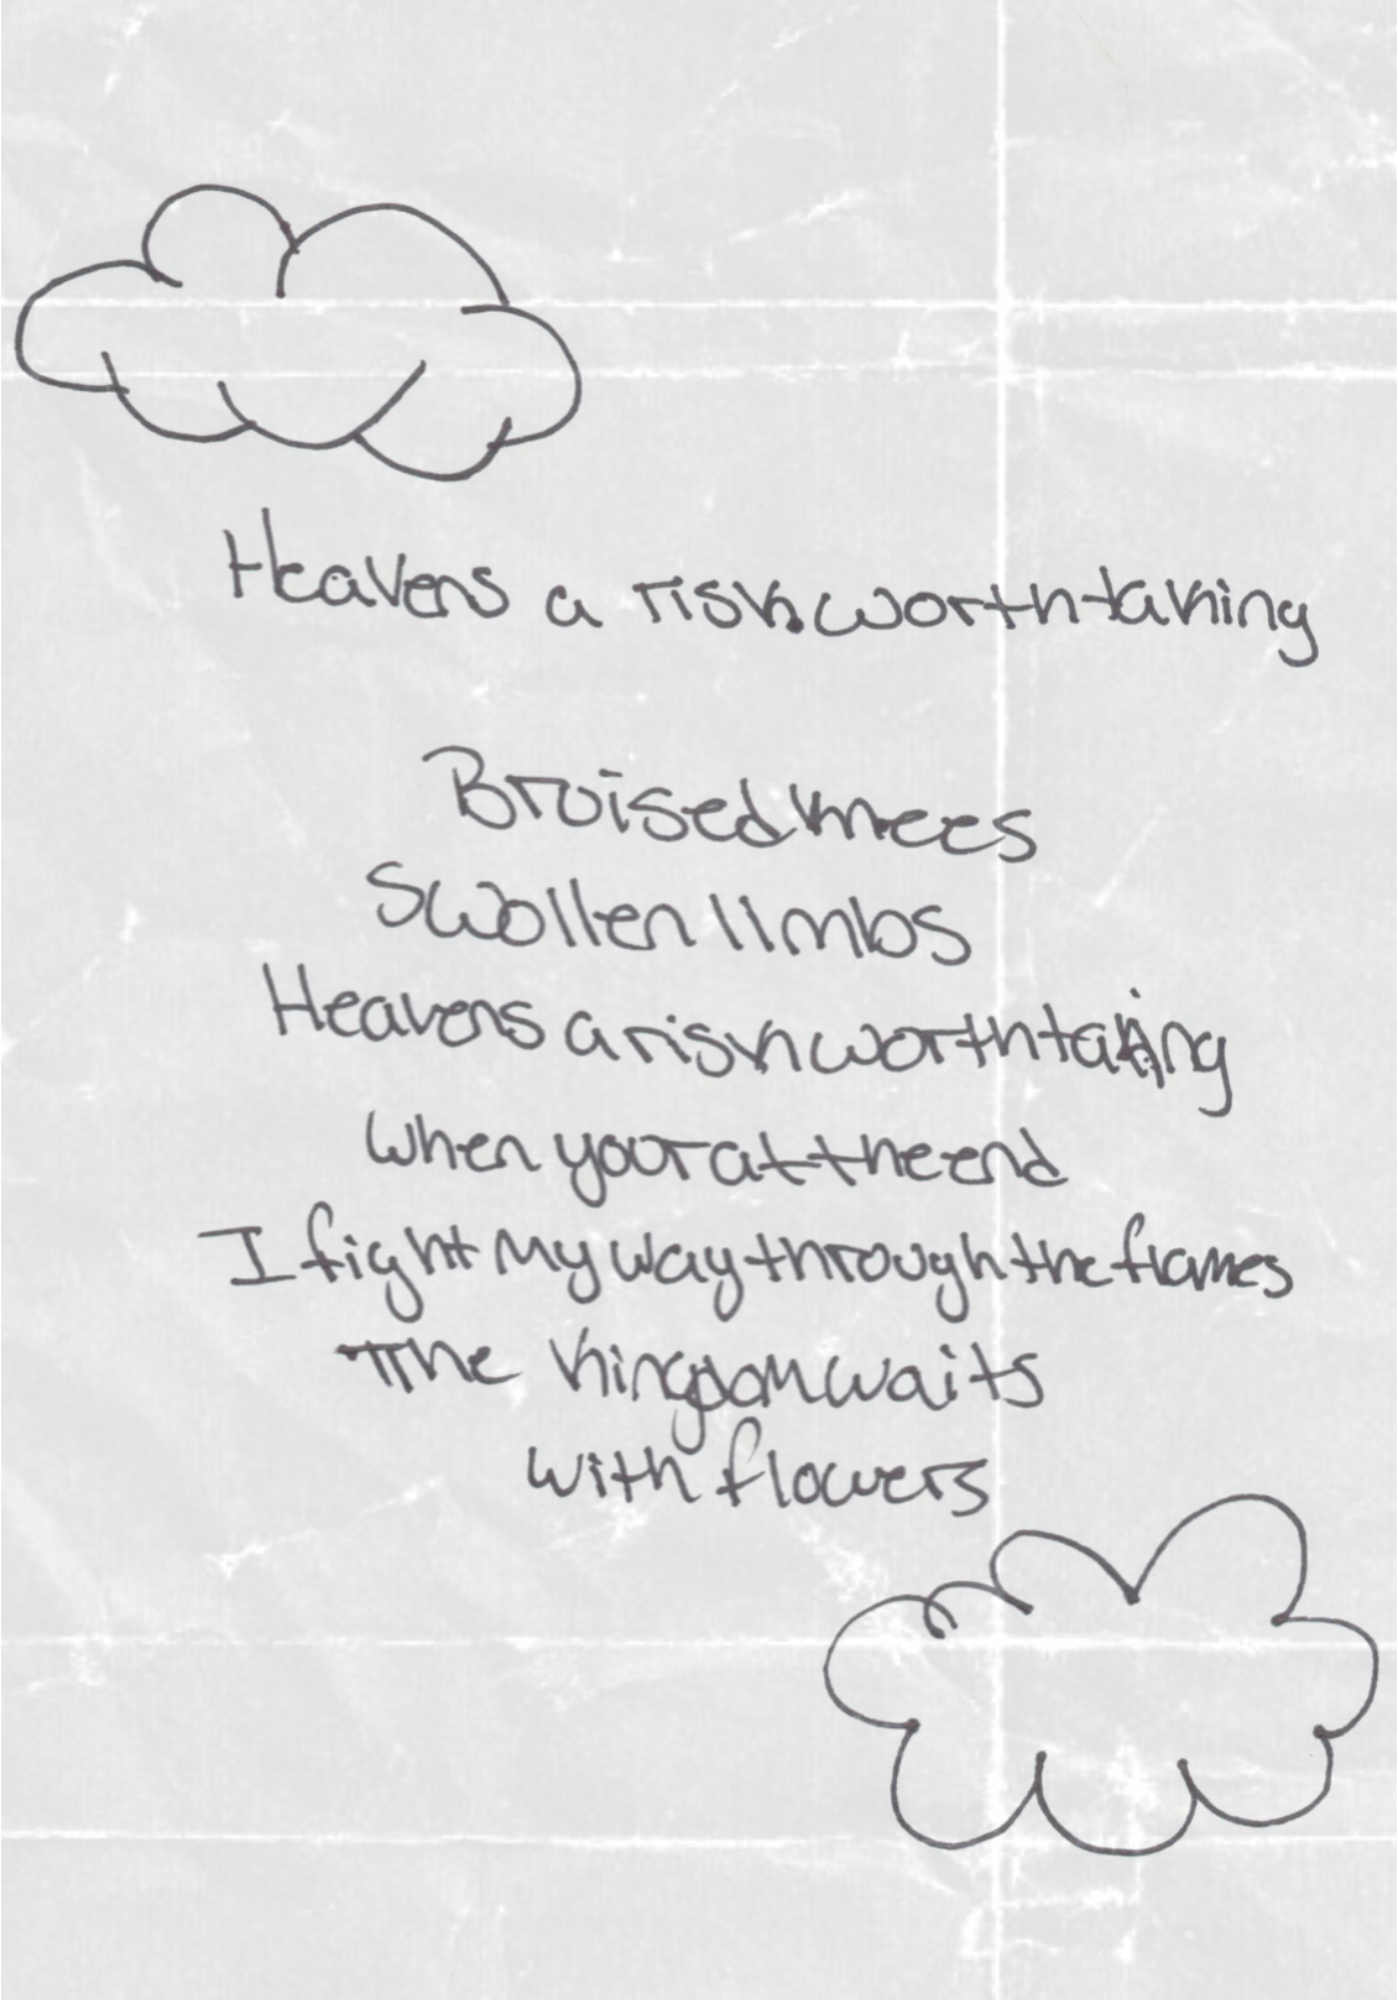 Heavens a risk worth taking
Bruised knees
Swollen limbs
Heavens a risk worth taking
When your at the end
I fight My way through the flames
The Kingdom waits
with flowers